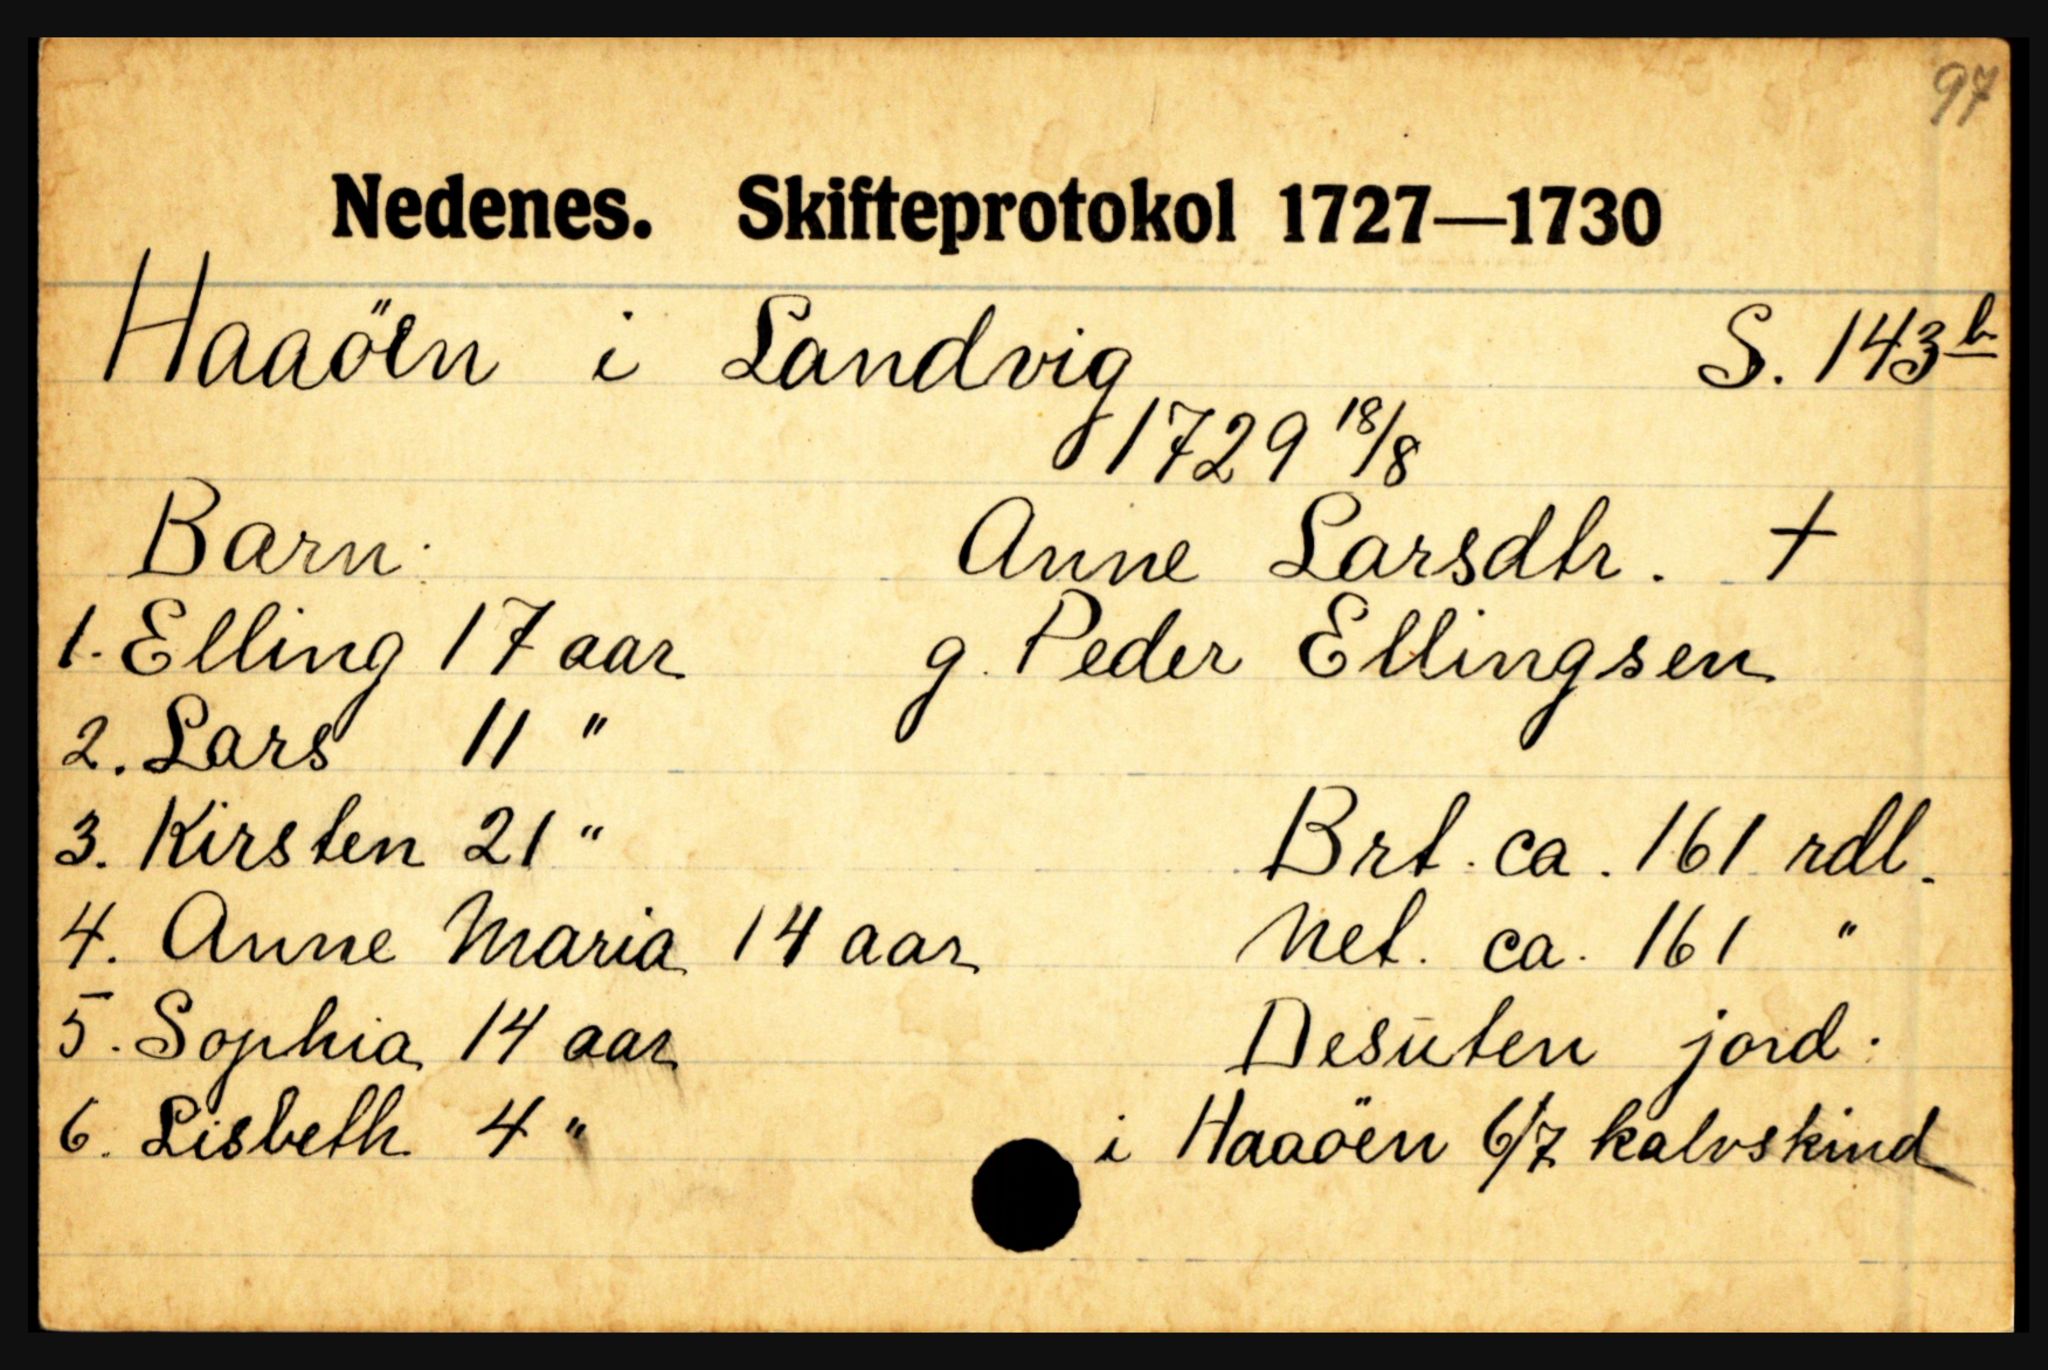 97
Nedenes. Skifteprotokol 1727—1730
Haaöen i Landvig S. 143b
1729 18/8
Barn: Anne Larsdtr. †
1. Elling 17 aar g. Peder Ellingsen
2. Lars 11 "
3. Kirsten 21 " Brt. ca. 161 rdl.
4. Anne Maria 14 aar Net. ca. 161 "
5. Sophia 14 aar Desuten jord.
6. Lisbeth 4 " i Haaöen 6/7 kalvskind